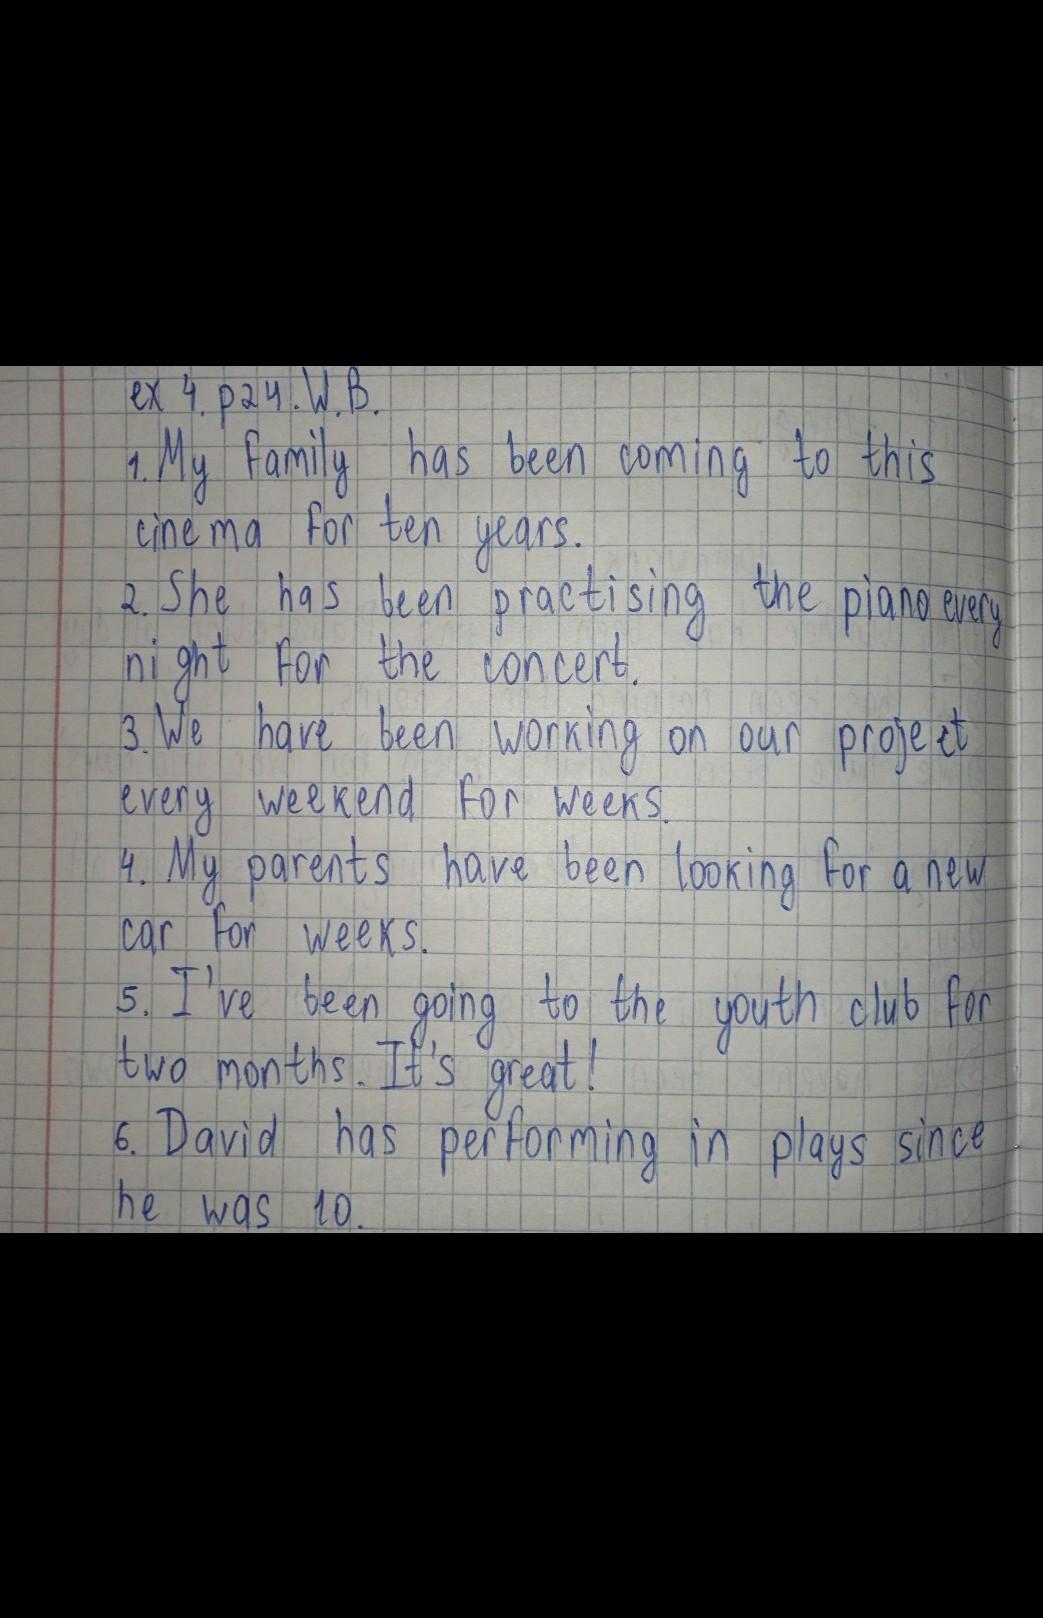 ex 4. p24. W.B.
1. My family has been coming to this
cinema for ten years.
2. She has been practising the piano every
night for the concert.
3. We have been working on our project
every weekend for weeks.
4. My parents have been looking for a new
car for weeks.
5. I've been going to the youth club for
two months. It's great!
6. David has performing in plays since
he was 10.